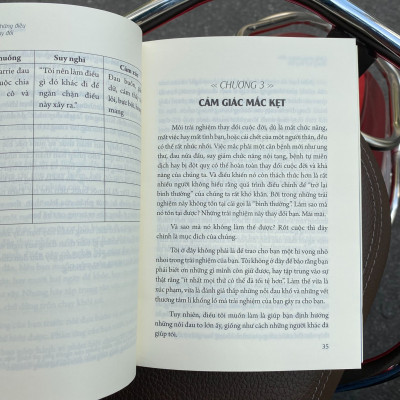 những điều
y đổi
huống
Suy nghĩ
"Tôi nên làm điều
gì đó khác đi để
ngăn chặn điều
này xảy ra."
arrie đau
uộc chia
cô và
Đau buồn,
« CHƯƠNG 3 »
CẢM GIÁC MẮC KẸT
Mỗi trải nghiệm thay đổi cuộc đời, dù là mất chức năng,
mất việc hay mất tình bạn, hoặc cái chết của một người thân, đều
có thể rất nhức nhối. Việc mắc phải một căn bệnh mới như ung
thư, đau nửa đầu, suy giảm chức năng nội tạng, bệnh tự miễn
dịch hay bị đột quỵ có thể hoàn toàn thay đổi cuộc sống và nhân
dạng của chúng ta. Và điều khiến nó còn thách thức hơn là rất
nhiều người không hiểu rằng quá trình điều chỉnh để "trở lại
bình thường" của chúng ta rất khó khăn. Bởi trong những trải
nghiệm này không tồn tại cái gọi là "bình thường". Làm sao mà
nó tồn tại được? Những trải nghiệm này thay đổi bạn. Mãi mãi.
Và sao mà nó không làm thế được? Rốt cuộc thì đây
chính là mục đích của chúng.
Tôi ở đây không phải là để trao cho bạn một hi vọng nhỏ
nhoi trong trải nghiệm của bạn. Tôi không ở đây để bảo rằng bạn
phải biết ơn những gì mình còn giữ được, hay tập trung vào sự
thật rằng "ít nhất mọi thứ có thể đã tồi tệ hơn". Làm thế vừa là
xúc phạm, vừa là đánh giá thấp những nỗi đau khổ và những vết
thương tâm lí khổng lồ mà trải nghiệm của bạn gây ra cho bạn.
Tuy nhiên, điều tôi muốn làm là giúp bạn định hướng
những nỗi đau to lớn ấy, giống như cách những người khác đã
giúp tôi,
35